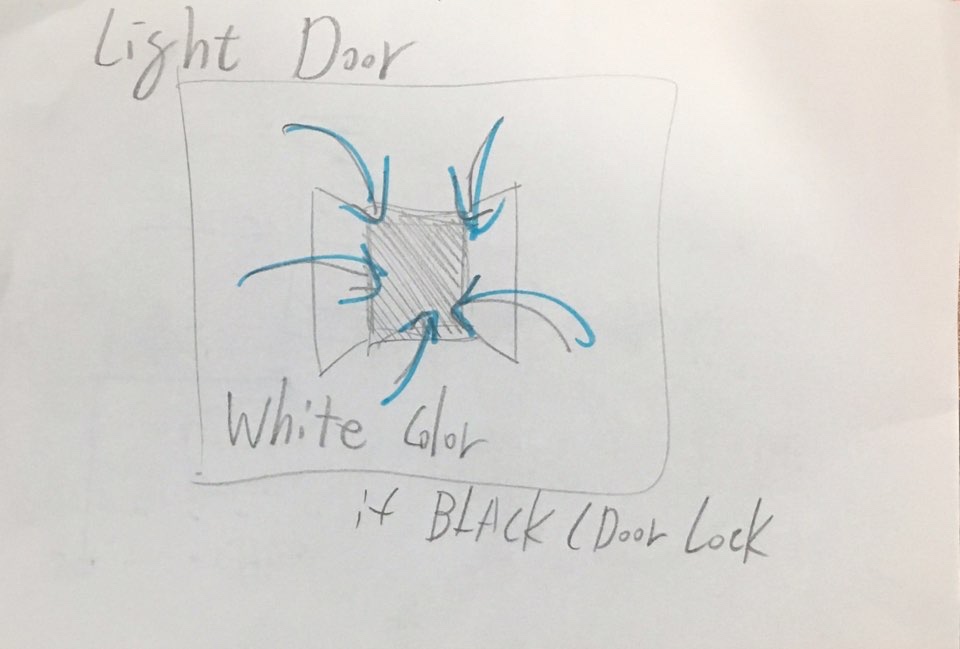 Light Door
White Color
if BLACK (Door Lock